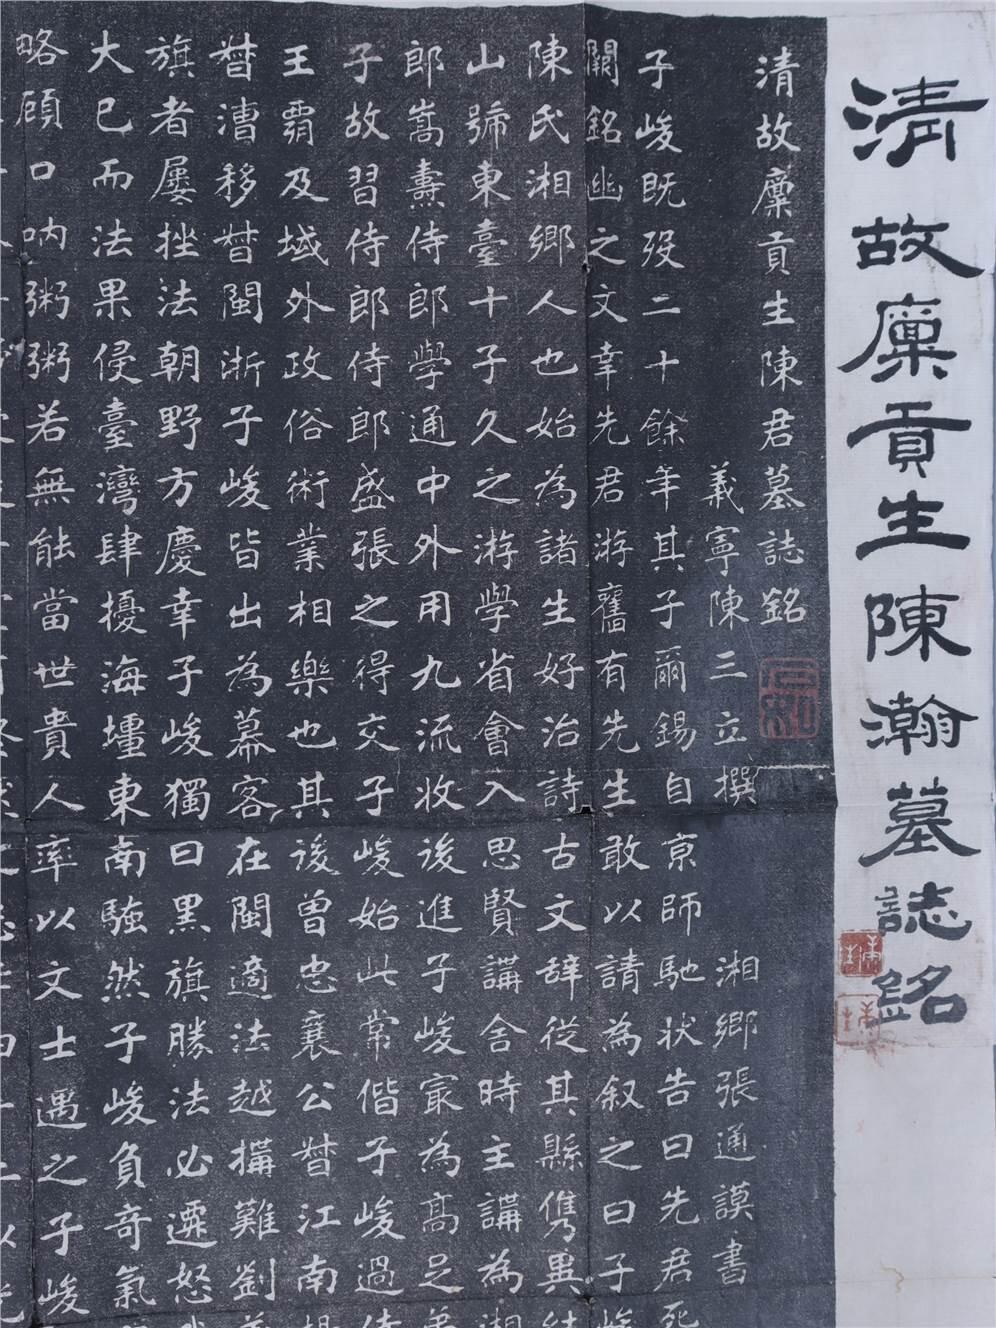 清故廩貢生陳瀚墓誌銘
清故廩貢生陳君墓誌銘
義寧陳三立撰 湘鄉張通謨書
子峻既歿二十餘年其子爾錫自京師馳状告曰先君死
闕銘幽之文幸先君游舊有先生敢以請為叙之曰子峻
陳氏湘鄉人也始為諸生好治詩古文辞從其縣儁異結
山號東臺十子久之游學省會入思賢講舍時主講為湘
郎嵩燾侍郎學通中外用九流收後進子峻冣為高足弟
子故習侍郎侍郎盛張之得交子峻始此常偕子峻過侍
王霸及域外政俗術業相樂也其後曾忠襄公督江南
督漕移督閩浙子峻皆出為幕客在閩適法越搆難劉
旗者屢挫法朝野方慶幸子峻獨曰黑旗勝法必遷怒
大已而法果侵臺灣肆擾海壖東南騷然子峻負奇氣
略顧口吶粥粥若無能當世貴人率以文士遇之子峻